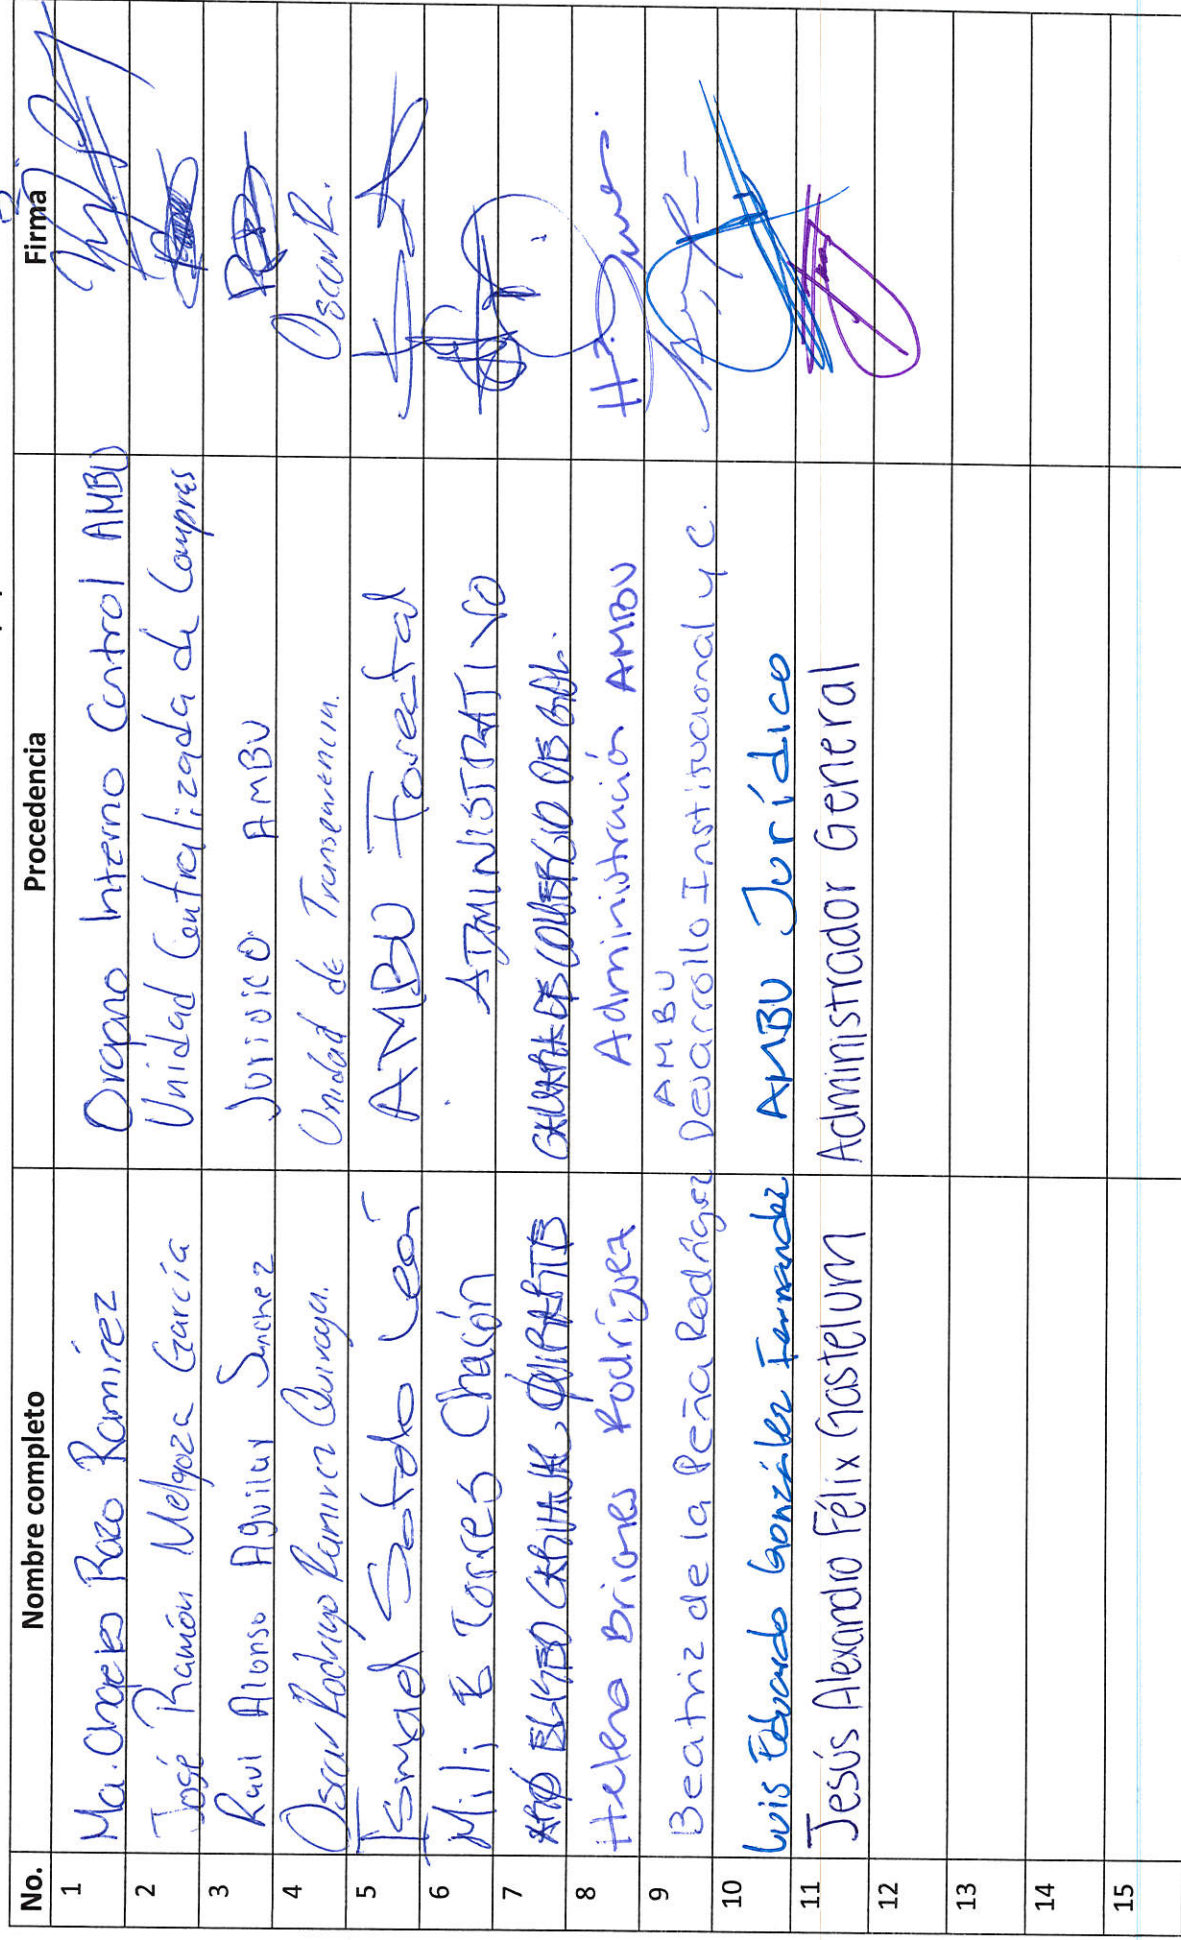 No. Nombre completo Procedencia Firma
1 Ma. Angeles Razo Ramírez Organo Interno Control AMBU
2 José Ramón Melgoza García Unidad Centralizada de Compras
3 Raul Alonso Aguilar Sanchez Juridico AMBU
4 Oscar Rodrigo Ramirez Unidad de Transparencia. Oscar R.
5 Ismael Sotelo León AMBU Forestal
6 Mili E Torres Chacón ADMINISTRATIVO
7
8 Helena Briones Rodríguez Administración AMBU
9 Beatriz de la Peña Rodríguez AMBU
Desarrollo Institucional y C.
10 Luis Eduardo González Fernandez AMBU Jurídico
11 Jesús Alexandro Félix Gastelum Administrador General
12
13
14
15